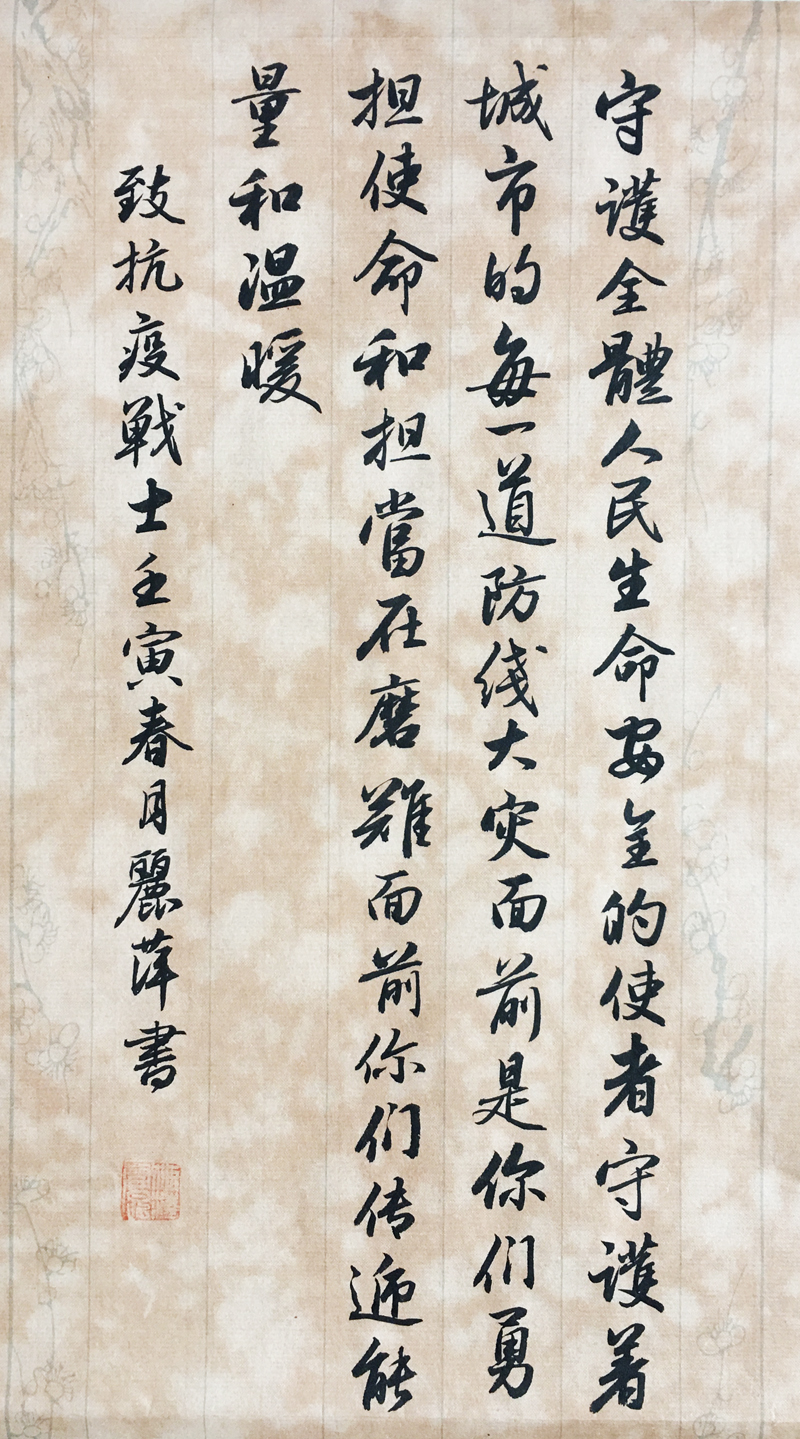 守護全體人民生命安全的使者守護着
城市的每一道防线大灾面前是你们勇
担使命和担當在磨難面前你们传遞能
量和温暖
致抗疫戰士壬寅春月麗萍書